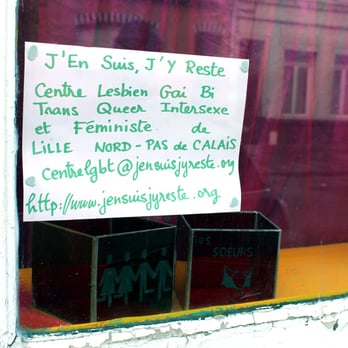 J'En Suis, J'Y Reste
Centre Lesbien Gai Bi
Trans Queer Intersexe
et Féministe de
LILLE NORD-PAS de CALAIS
centrelgbt@jensuisjyreste.org
http://www.jensuisjyreste.org
SOEURS